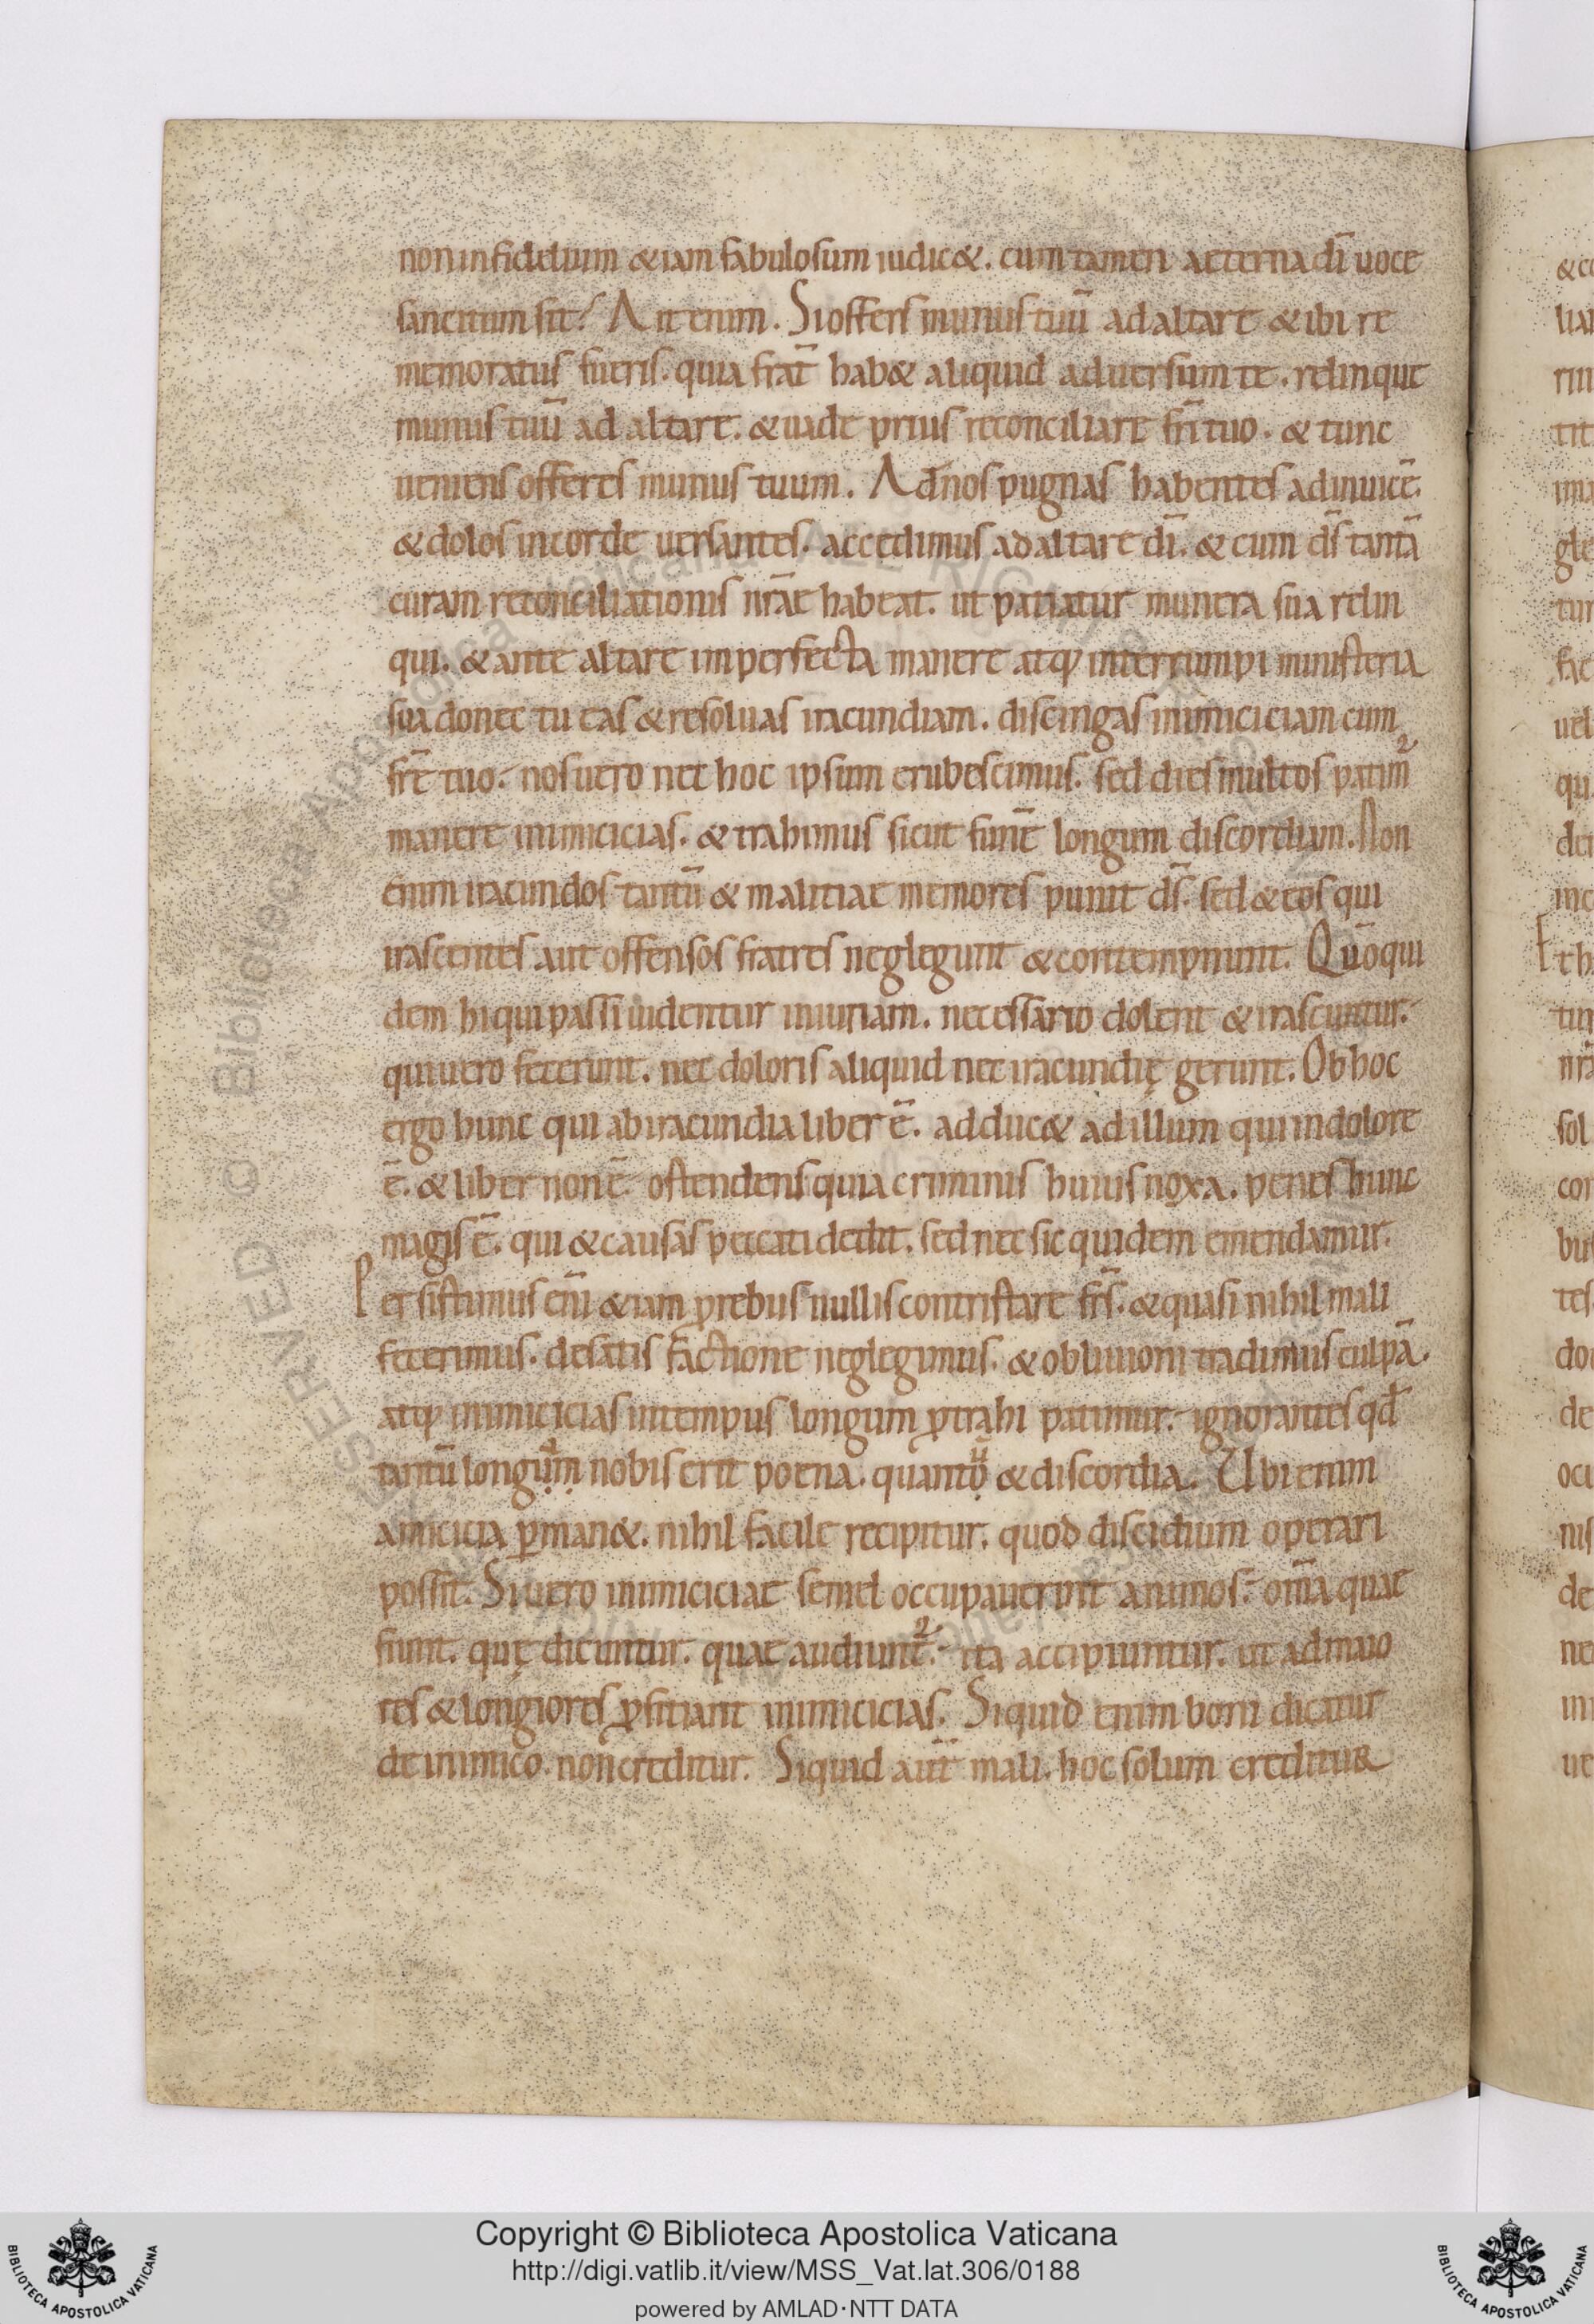 non infidelium &iam fabulosum iudic&. cum tamen aeterna dī uoce
sancitum sit? Ait enim. Si offers munus tuū ad altare & ibi re
memoratus fueris. quia frat̄ hab& aliquid aduersum te. relinque
munus tuū ad altare. & uade prius reconciliare frī tuo. & tunc
ueniens offeres munus tuum. Ad nos pugnas habentes adinuicē.
& dolos in corde uersantes. accedimus ad altare dī. & cum ds̄ tantā
curam reconciliationis nr̄ae habeat. ut patiatur munera sua relin
qui. & ante altare imperfecta manere atq; interrumpi ministeria
sua donec tu eas & resoluas iracundiam. discingas inimiciciam cum
fr̄e tuo. nos uero nec hoc ipsum erubescimus. sed dies multos patim̄
manere inimicicias. & trahimus sicut funē longum discordiam. Non
enim iracundos tantū & malitiae memores punit ds̄. sed & eos qui
irascentes aut offensos fratres neglegunt & contempnunt. Qūo qui
dem hi qui passi uidentur iniuriam. necessario dolent & irascuntur.
qui uero fecerunt. nec doloris aliquid nec iracundię gerunt. Ob hoc
ergo hunc qui ab iracundia liber ē. adduc& ad illum qui in dolore
ē. & liber non ē. ostendens quia criminis huius noxa. penes hunc
magis ē. qui & causas peccati dedit. sed nec sic quidem emendamur.
Persistimus enī &iam p rebus nullis contristare frs̄. & quasi nihil mali
fecerimus. de satis factione neglegimus. & obliuioni tradimus culpā.
atq; inimicicias in tempus longum ptrahi patimur. ignorantes qd̄
tantū longum nobis erit poena. quanto & discordia. Ubi enim
amicicia pman&. nihil facile recipitur. quod discidium operari
possit. Si uero inimiciciae semel occupauerint animos. om̄a quae
fiunt. quę dicuntur. quae audiunt̄. ita accipiuntur. ut ad maio
res & longiores pfitiant inimicicias. Si quid enim boni dicatur
de inimico. non creditur. Si quid aut̄ mali. hoc solum creditur
Copyright © Biblioteca Apostolica Vaticana
http://digi.vatlib.it/view/MSS_Vat.lat.306/0188
powered by AMLAD·NTT DATA
BIBLIOTECA APOSTOLICA VATICANA
BIBLIOTECA APOSTOLICA VATICANA